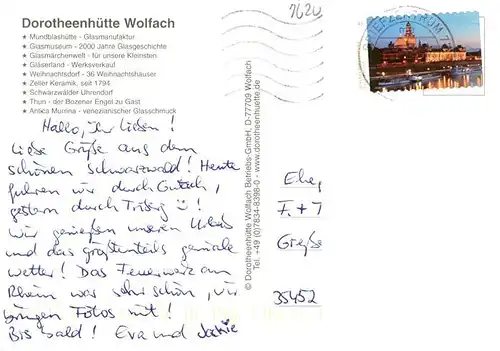 Dorotheenhütte Wolfach
★ Mundblashütte - Glasmanufaktur
★ Glasmuseum - 2000 Jahre Glasgeschichte
★ Glasmärchenwelt - für unsere Kleinsten
★ Gläserland - Werksverkauf
★ Weihnachtsdorf - 36 Weihnachtshäuser
★ Zeller Keramik, seit 1794
★ Schwarzwälder Uhrendorf
★ Thun - der Bozener Engel zu Gast
★ Antica Murrina - venezianischer Glasschmuck
Hallo, ihr Lieben!
Liebe Grüße aus dem
schönen Schwarzwald! Heute
fuhren wir durch Gutach,
gestern durch Triberg ☺!
Wir genießen unseren Urlaub
und das größtenteils geniale
Wetter! Das Feuerwerk am
Rhein war sehr schön, wir
bringen Fotos mit!
Bis bald! Eva und Jackie
© Dorotheenhütte Wolfach Betriebs-GmbH, D-77709 Wolfach
Tel. +49 (0)7834-8398-0 - www.dorotheenhuette.de
7620
BRIEFZENTRUM
Ehep
F. + T
Große
35452